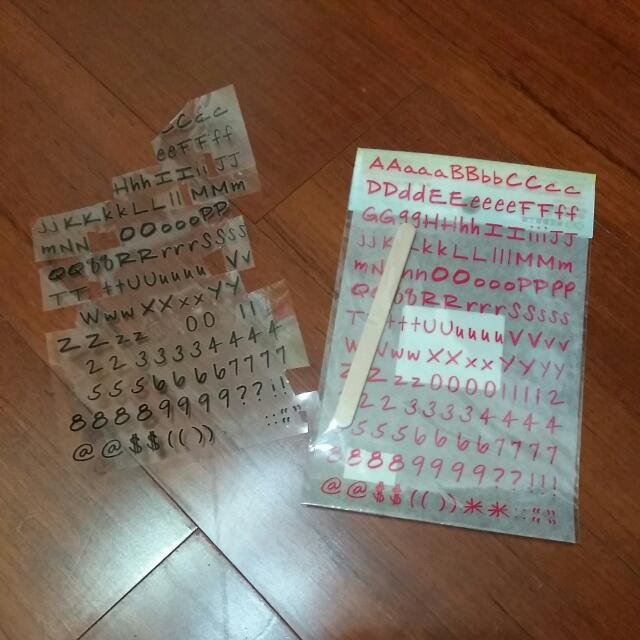 c C c c
e e F F f f
H h h I I i i J J
j j K K k k L L l l M M m
m N N O O o o o P P
Q Q q q R R r r r S S S S
T T t t U U u u u u V v
W w w X X x x Y Y
Z Z z z 0 0 1 1 1
2 2 2 3 3 3 3 4 4 4 4
5 5 5 6 6 6 6 7 7 7 7
8 8 8 8 9 9 9 9 ? ? ! !
@ @ $ $ ( ( ) ) : : " "
A A a a a B B b b C C c c
D D d d E E e e e e F F f f
G G g g H H h h I I i i i J J
j j K k k L L l l l M M m
m N n n O O o o o P P P p
Q q 8 R R r r r S S S s s
T t t U U u u u u V V v v
W w w X X x x Y Y y y
Z Z z z 0 0 0 0 1 1 1 1 2
2 2 3 3 3 3 4 4 4 4
5 5 5 6 6 6 6 7 7 7 7
8 8 8 8 9 9 9 9 ? ? ! ! !
@ @ $ $ ( ( ) ) * * : : " "